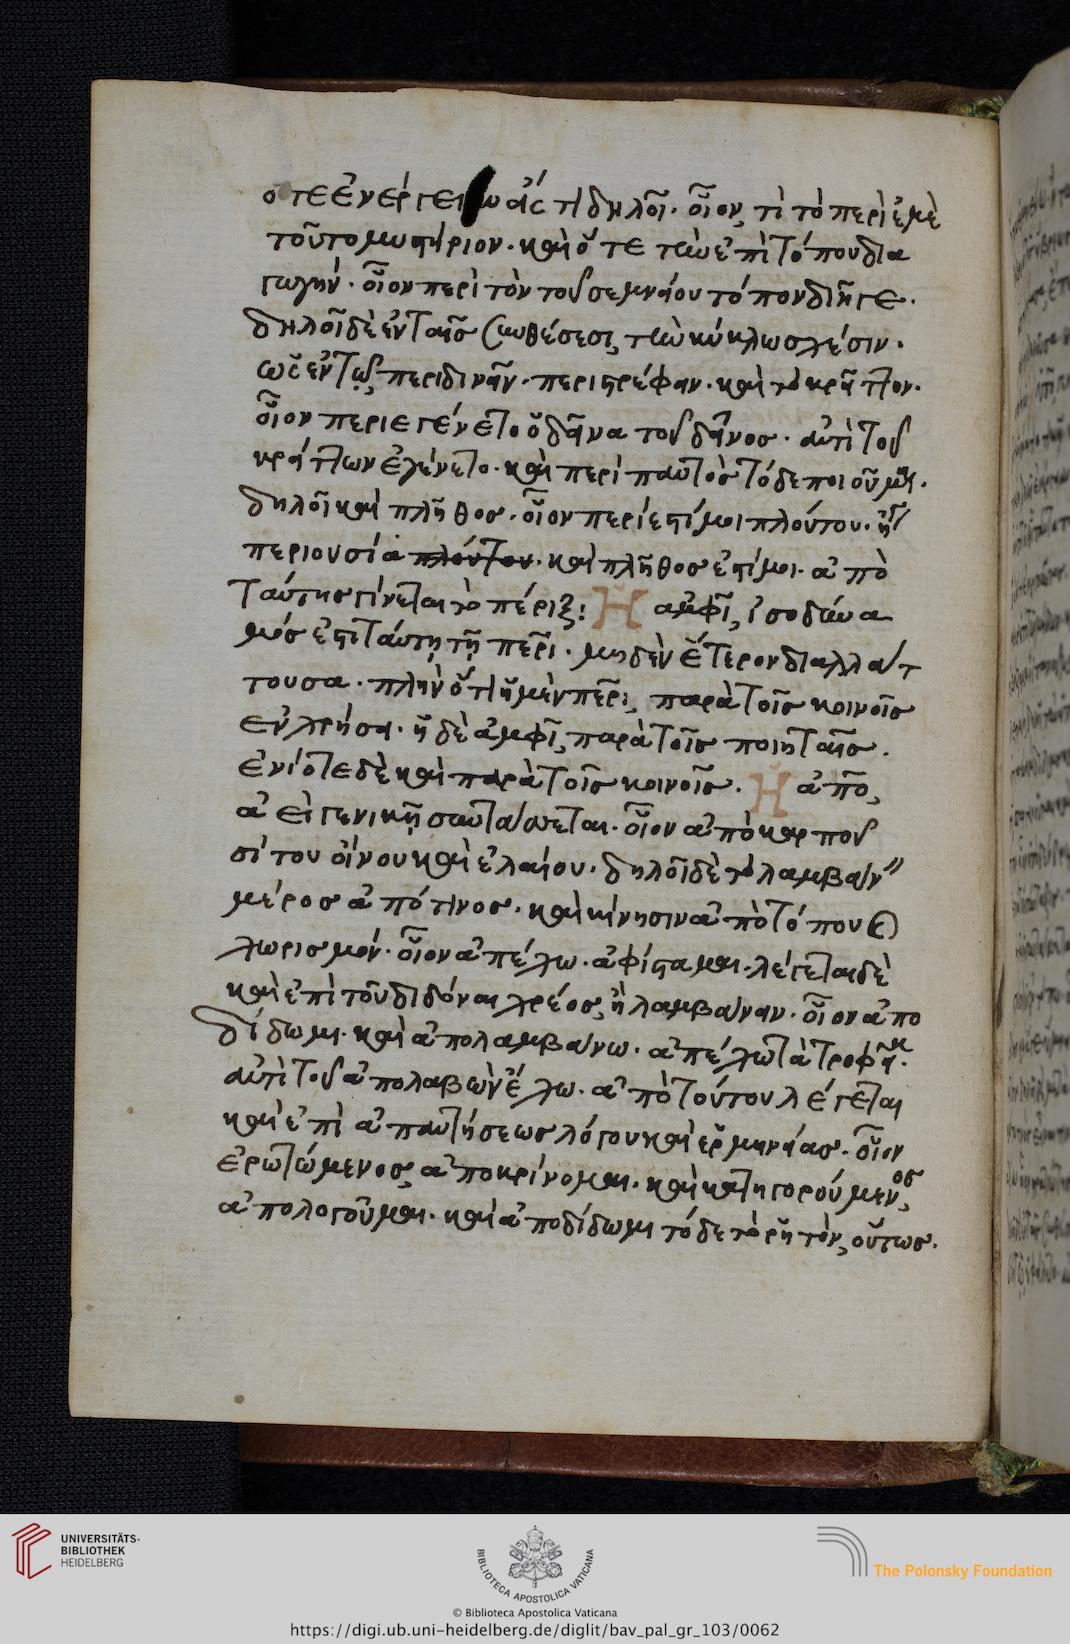 ὅτε ἐνέργειαν εἴς τι δηλοῖ· οἷον, τί τὸ περὶ ἐμὲ
τοῦτο μυστήριον· καὶ ὅτε τὴν ἐπὶ τόπου δια
γωγήν· οἷον περὶ τὸν τοῦ σεμνείου τόπον διῆγε·
δηλοῖ δὲ ἐν ταῖς συνθέσεσι, τὴν κύκλω σχέσιν·
ὡς ἐν τῷ περιδινεῖν· περιστρέφειν· καὶ τὸ κρεῖττον·
οἷον περιεγένετο ὁ δεῖνα τοῦ δεῖνος· ἀντὶ τοῦ
κρείττων ἐγένετο· καὶ περὶ παντὸς τόδε ποιοῦμαι·
δηλοῖ καὶ πλῆθος· οἷον περίεστί μοι πλούτου· ἢ
περιουσία πλούτου· καὶ πλῆθος ἐστί μοι· ἀπὸ
ταύτης γίνεται τὸ πέριξ: Ἡ ἀμφὶ, ἰσοδύνα
μός ἐστι ταύτη τῇ περὶ· μηδὲν ἕτερον διαλλάτ
τουσα· πλὴν ὅτι ἡ μὲν περὶ, παρὰ τοῖς κοινοῖς
ἐν χρήσει· ἡ δὲ ἀμφὶ, παρὰ τοῖς ποιηταῖς·
ἐνίοτε δὲ καὶ παρὰ τοῖς κοινοῖς· Ἡ ἀπὸ,
ἀεὶ γενικῇ συντάσσεται· οἷον ἀπὸ καρποῦ
σίτου οἴνου καὶ ἐλαίου· δηλοῖ δὲ τὸ λαμβάνειν
μέρος ἀπό τινος· καὶ κίνησιν ἀπὸ τόπου καὶ
χωρισμόν· οἷον ἀπέχω· ἀφίσταμαι· λέγεται δὲ
καὶ ἐπὶ τοῦ διδόναι χρέος, ἢ λαμβάνειν· οἷον ἀπο
δίδωμι· καὶ ἀπολαμβάνω· ἀπέχω τὰ τροφεῖα·
ἀντὶ τοῦ ἀπολαβὼν ἔχω· ἀπὸ τούτου λέγεται
καὶ ἐπὶ ἀπαντήσεως λόγου καὶ ἑρμηνείας· οἷον
ἐρωτώμενος, ἀποκρίνομαι· καὶ κατηγορούμενος,
ἀπολογοῦμαι· καὶ ἀποδίδωμι τόδε τὸ ῥητὸν, οὕτως·
UNIVERSITÄTS-
BIBLIOTHEK
HEIDELBERG
BIBLIOTECA APOSTOLICA VATICANA
The Polonsky Foundation
© Biblioteca Apostolica Vaticana
https://digi.ub.uni-heidelberg.de/diglit/bav_pal_gr_103/0062